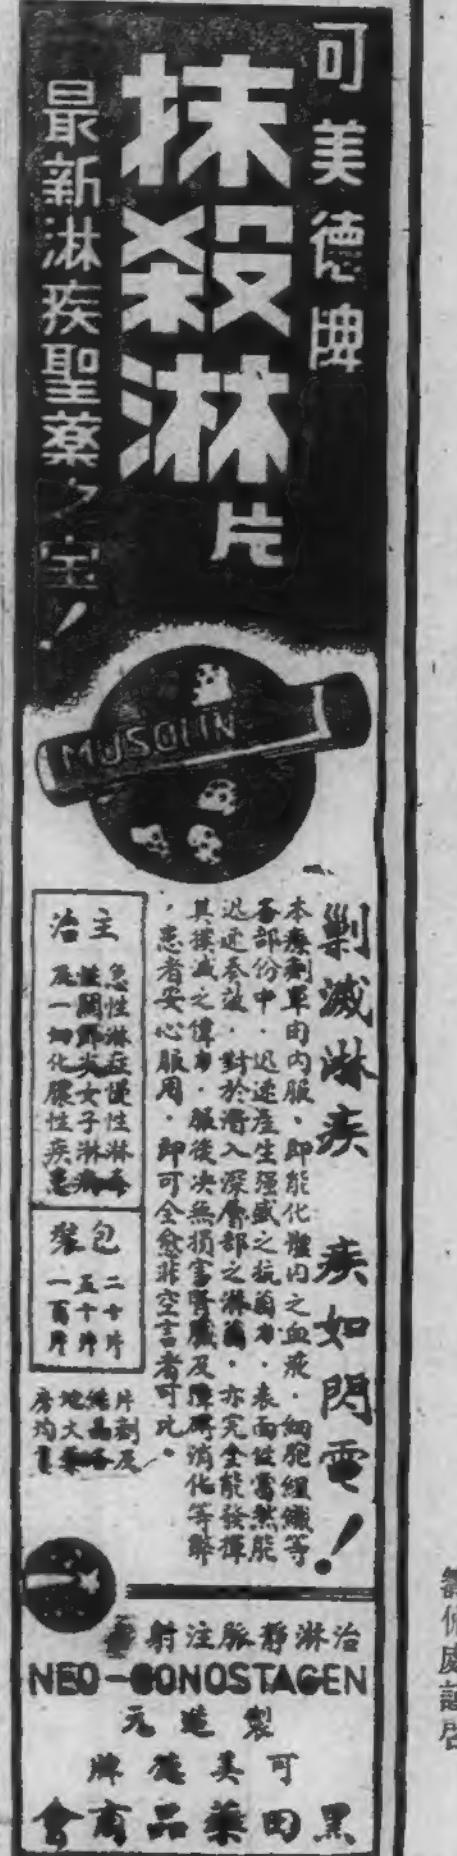 可美德牌
抹殺淋片
最新淋疾聖薬之宝！
MUSOLIN
剿滅淋疾　疾如閃電！
本療劑單由內服，即能化體內之血液，細胞組織等
各部份中，迅速產生强盛之抗菌力，表面性當然能
迅速奏效，對於潛入深層部之淋菌，亦完全能發揮
其撲滅之偉力，服後決無損害腎臟及障碍消化等弊
，患者安心服用，即可全愈非空言者可比。
主治
急性淋症慢性淋
性關節炎女子淋病
及一切化膿性疾患
包裝
二十片
五十片
一百片
片劑及
治淋靜脈注射
NEO-GONOSTAGEN
製造元
可美德牌
黑田薬品商會